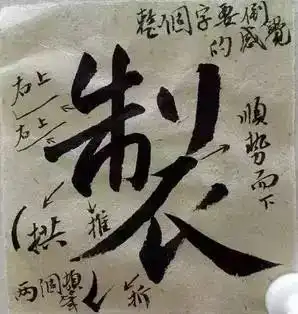 整個字要倒
的感覺
右上
右上
製
順勢而下
推
拱
两個
折